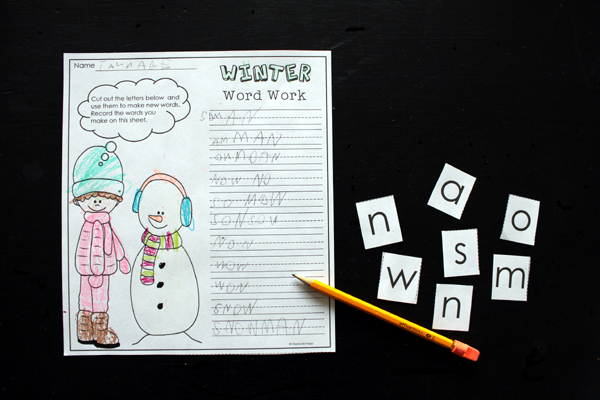 Name
WINTER
Word Work
Cut out the letters below and
use them to make new words.
Record the words you
make on this sheet.
AN
MAN
MOON
NOW NO
SO MOW
SON SOW
NOW
MOW
WON
SNOW
SNOWMAN
a
n
o
s
w
m
n